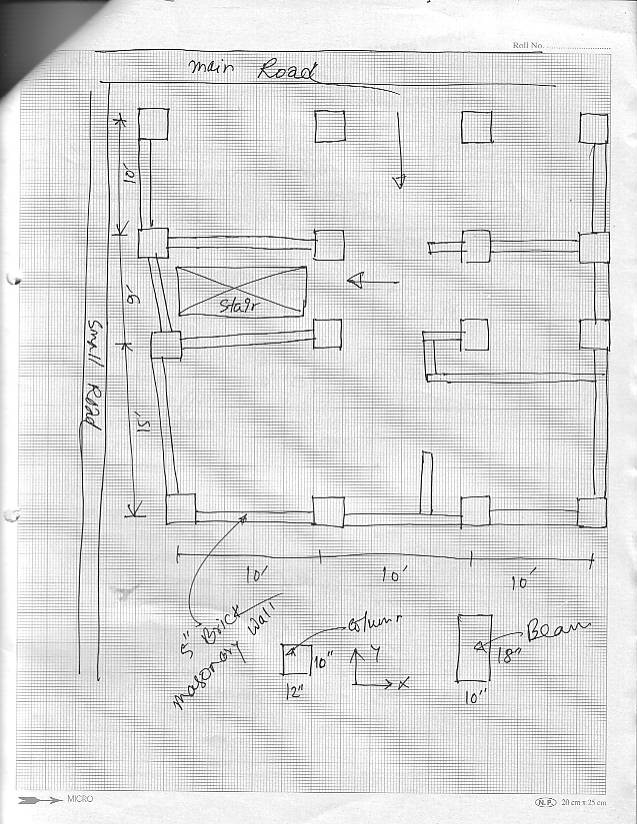 Roll No.
main Road
10'
Stair
9'
Small Road
15'
10'
10'
10'
5" Brick
masonary Wall
column
10"
12"
Y
X
Beam
18"
10"
MICRO
N.P. 20 cm x 25 cm